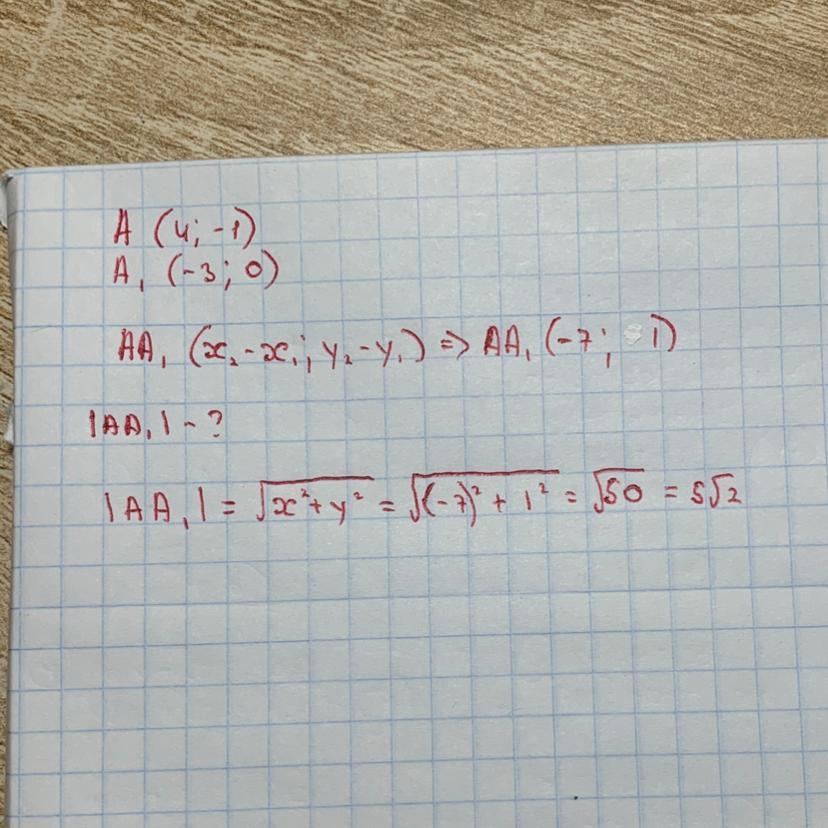 A (4; -1)
A₁ (-3; 0)
AA₁ (x₂-x₁; y₂-y₁) => AA₁ (-7; 1)
|AA₁| - ?
|AA₁| = √(x²+y²) = √((-7)² + 1²) = √50 = 5√2